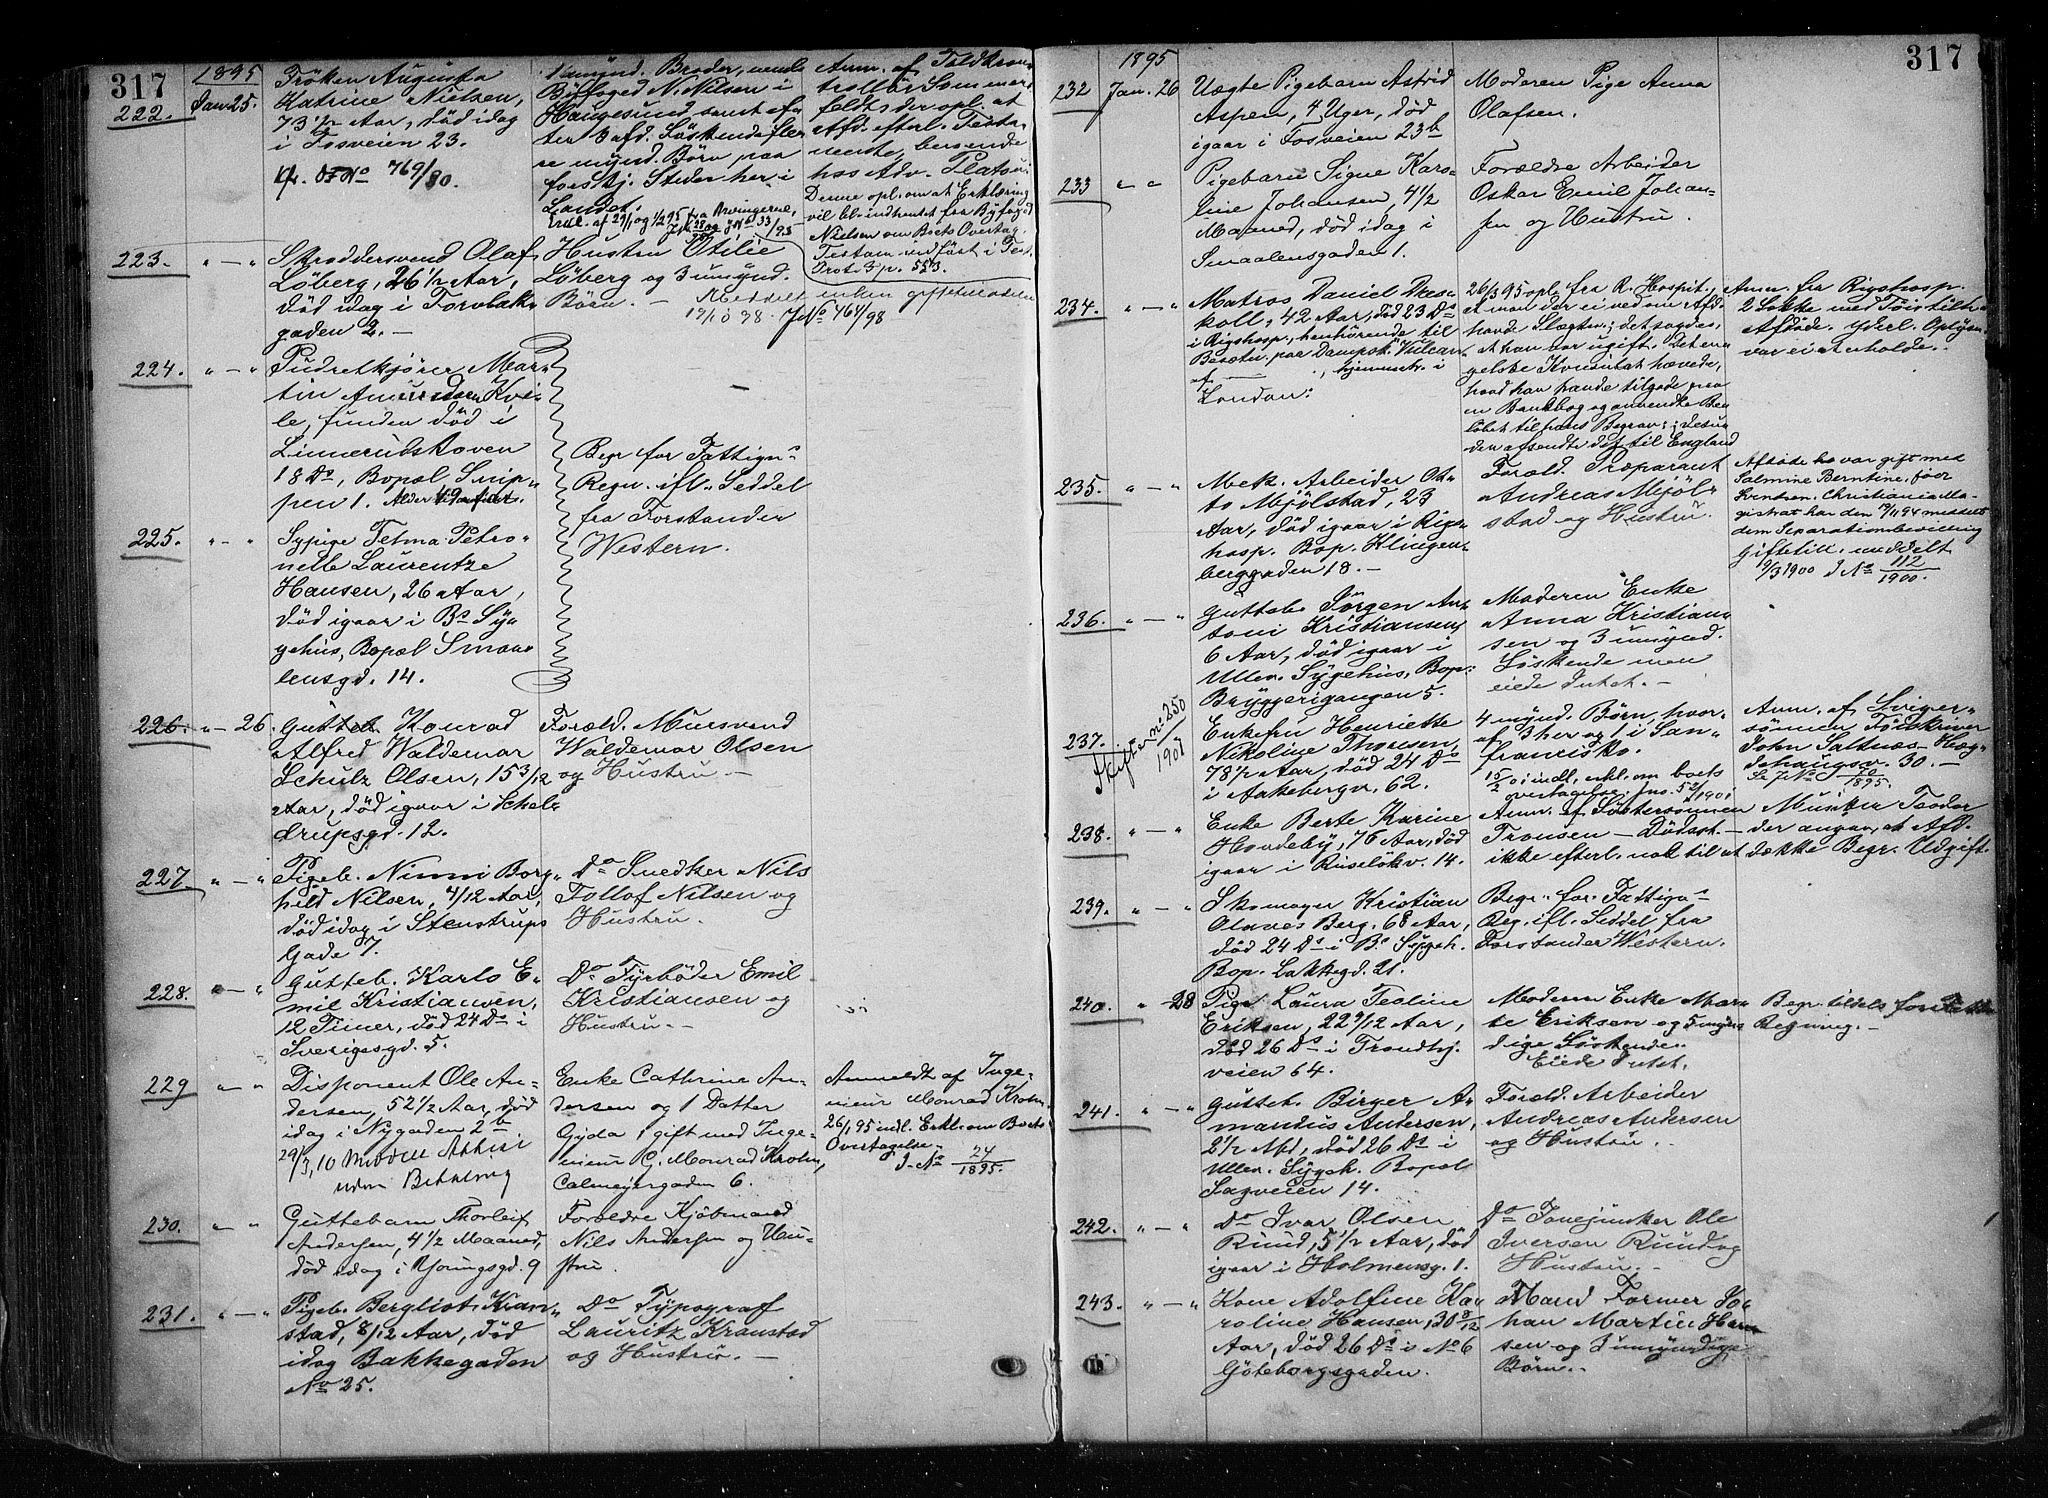 317
1895
222. Jan 25.
Fröken Augusta
Katrine Nielsen,
73 1/2 Aar, död idag
i Fosveien 23.
769/80.
1 mynd. Broder, nemlig
Byfoged N. Nilsen i
Haugesund samt ef-
ter 3 afd. Söskende fle-
re mynd. Börn paa
forskj. Steder her i
Landet.
Erkl. af 29/1 og 1/2 95 fra Arvingerne,
Anm. af Toldkon-
trollör Sommer-
feldt, der opl. at
Afd. efterl. Testa-
mente, beroende
hos Adv. Platou.
Denne opl. om at Erklæring
vil bli indhentet fra Byfoged
Nielsen om Boets Overtag.
Testam. indföst i Test.
Prot. 3 p. 553.
223. " — "
Skræddersvend Olaf
Löberg, 26 1/2 Aar,
död idag i Torvbak-
gaden 2. —
Hustru Otilie
Löberg og 3 umynd.
Börn. —
Meddelt enken
19/10 98. J No 464/98
224. " — "
Pudretkjörer Mar-
tin Amundsen Kvi-
le, funden död i
Linnerudskoven
18 Ds, Bopæl Snip-
pen 1. Alder
—
Begr. for Fattigv.s
Regn. ifl. Seddel
fra Forstander
Western.
225. " — "
Sypige Telma Petro-
nelle Laurentze
Hansen, 26 Aar,
död igaar i Bs Sy-
gehus, Bopæl Smaa-
lensgd. 14.
226. " — 26.
Gutteb. Konrad
Alfred Waldemar
Schulz Olsen, 15 3/12
Aar, död igaar i Schel-
drupsgd. 12.
Foræld. Mursvend
Waldemar Olsen
og Hustru. —
227. " — "
Pigeb. Ninni Borg-
hild Nilsen, 4/12 Aar,
död idag i Stenstrups
Gade 7.
Do Snedker Nils
Tollof Nilsen og
Hustru.
228. " — "
Gutteb. Karlo E-
mil Kristiansen,
12 Timer, död 24 Ds i
Sverigesgd. 5.
Do Fyrböder Emil
Kristiansen og
Hustru. —
229 " — "
Disponent Ole An-
dersen, 52 1/2 Aar, död
idag i Nygaden 2b
29/3 10 Meddelt Attest
uden Betaling
Enke Cathrine An-
dersen og 1 Datter
Gyda, gift med Inge-
nieur G. Monrad Krohn,
Calmeyergaden 6.
Anmeldt af Inge-
nieur Monrad Krohn.
26/1 95 indl. Erkl. om Boets
Overtagelse.
J. No 24/1895.
230. " — "
Guttebarn Thorleif
Andersen, 4 1/2 Maaned,
död idag i Yoringsgd. 9
Forældre Kjöbmand
Nils Andersen og Hu-
stru.
231. " — "
Pigeb. Bergliot Kran-
stad, 8/12 Aar, död
idag Bakkegaden
No 25.
Do Typograf
Lauritz Kranstad
og Hustru. —
317
1895
232 Jan. 26
Uægte Pigebarn Astrid
Aspen, 4 Uger, död
igaar i Fosveien 23b
Moderen Pige Anna
Olafsen.
233 " "
Pigebarn Signe Karo-
line Johansen, 4 1/2
Maaned, död idag i
Smaalensgaden 1.
Forældre Arbeider
Oskar Emil Johan-
sen og Hustru.
234. " — "
Matros Daniel
koll, 42 Aar, död 23 Ds
i Rigshosp., henhörende til
Besætn. paa Dampsk. Vulcan
af , hjemmeh. i
London:
26/3 95 opl. fra R. Hospit.,
at man der ei ved om Afd.
havde Slægtn.; det sagdes,
at han var ugift. Det en-
gelske Konsulat hævede,
hvad han havde tilgode paa
en Bankbog og anvendte Be-
löbet til hans Begrav.; desu-
den afsendte det til England
Anm. fra Rigshosp.
2 Sække med Töi tilh.
Afdöde. yderl. Oplysn.
var ei at erholde. —
235. " — "
Mek. Arbeider Ot-
to Mjölstad, 23
Aar, död igaar i Rigs-
hosp. Bop. Klingen-
berggaden 18. —
Foræld. Præparant
Andreas Mjöl-
stad og Hustru.
Afdöde her var gift med
Salmine Berntine, född
Svendsen. Christiania Ma-
gistrat har den 19/11 94 meddelt
dem Separationsbevilling
Giftetill. meddelt
9/3 1900 J No 112/1900.
236. " — "
Gutteb. Jörgen An-
toni Kristiansen,
6 Aar, död igaar i
Ullev. Sygehus, Bop.
Bryggerigangen 5.
Moderen Enke
Anna Kristian-
sen og 3 umynd.
Söskende men
eiede Intet. —
237.
Skifte No 250/1901
Enkefru Henriette
Nikoline Thoresen,
78 1/2 Aar, död 24 Ds
i Aakebergv. 62.
4 mynd. Börn, hvor-
af 3 her og 1 i San-
francisko.
15/2 01 indl. erkl. om boets
overtagelse. jns. 52/1901
Anm. af Sviger-
sönnen Tolskriver
John Saltnes Heg-
dehaugsv. 30. —
Se J No 70/1895.
238. " — "
Enke Berte Karine
Hovdeby, 76 Aar, död
igaar i Ruselökv. 14.
Anm. af Söstersönnen Musiker Teodor
Tronsen — Dödsat. — der angav, at Afd.
ikke efterl. nok til at dække Begr. Udgift.
239. " — "
Skomager Kristian
Olaves Berg, 68 Aar,
död 24 Ds i Bs Sygeh.
Bop. Lakkegd. 21.
Begr. for Fattigv.s
Reg. ifl. Seddel fra
Forstander Western.
240. " 28
Pige Laura Teoline
Eriksen, 22 9/12 Aar,
död 26 Ds i Trondhj.
veien 64.
Moderen Enke Mar-
te Eriksen og 5 myn-
dige Söskende.
Eiede Intet.
Begr. tildels for
Regning. —
241. " — "
Gutteb. Birger A-
mandus Andersen,
2 1/2 Md, död 26 Ds i
Ullev. Sygeh. Bopæl
Sagveien 14.
Foræld. Arbeider
Andreas Andersen
og Hustru. —
242. " — "
Do Ivar Olsen
Ruud, 5 1/2 Aar, död
igaar i Holmensg. 1.
Do Ole
Iversen Ruud og
Hustru. —
243. " — "
Kone Adolfine Ka-
roline Hansen, 30 8/12
Aar, död 26 Ds i No 6
Göteborgsgaden.
Mand Former Jo-
han Martin Han-
sen og 3 umyndige
Börn. —